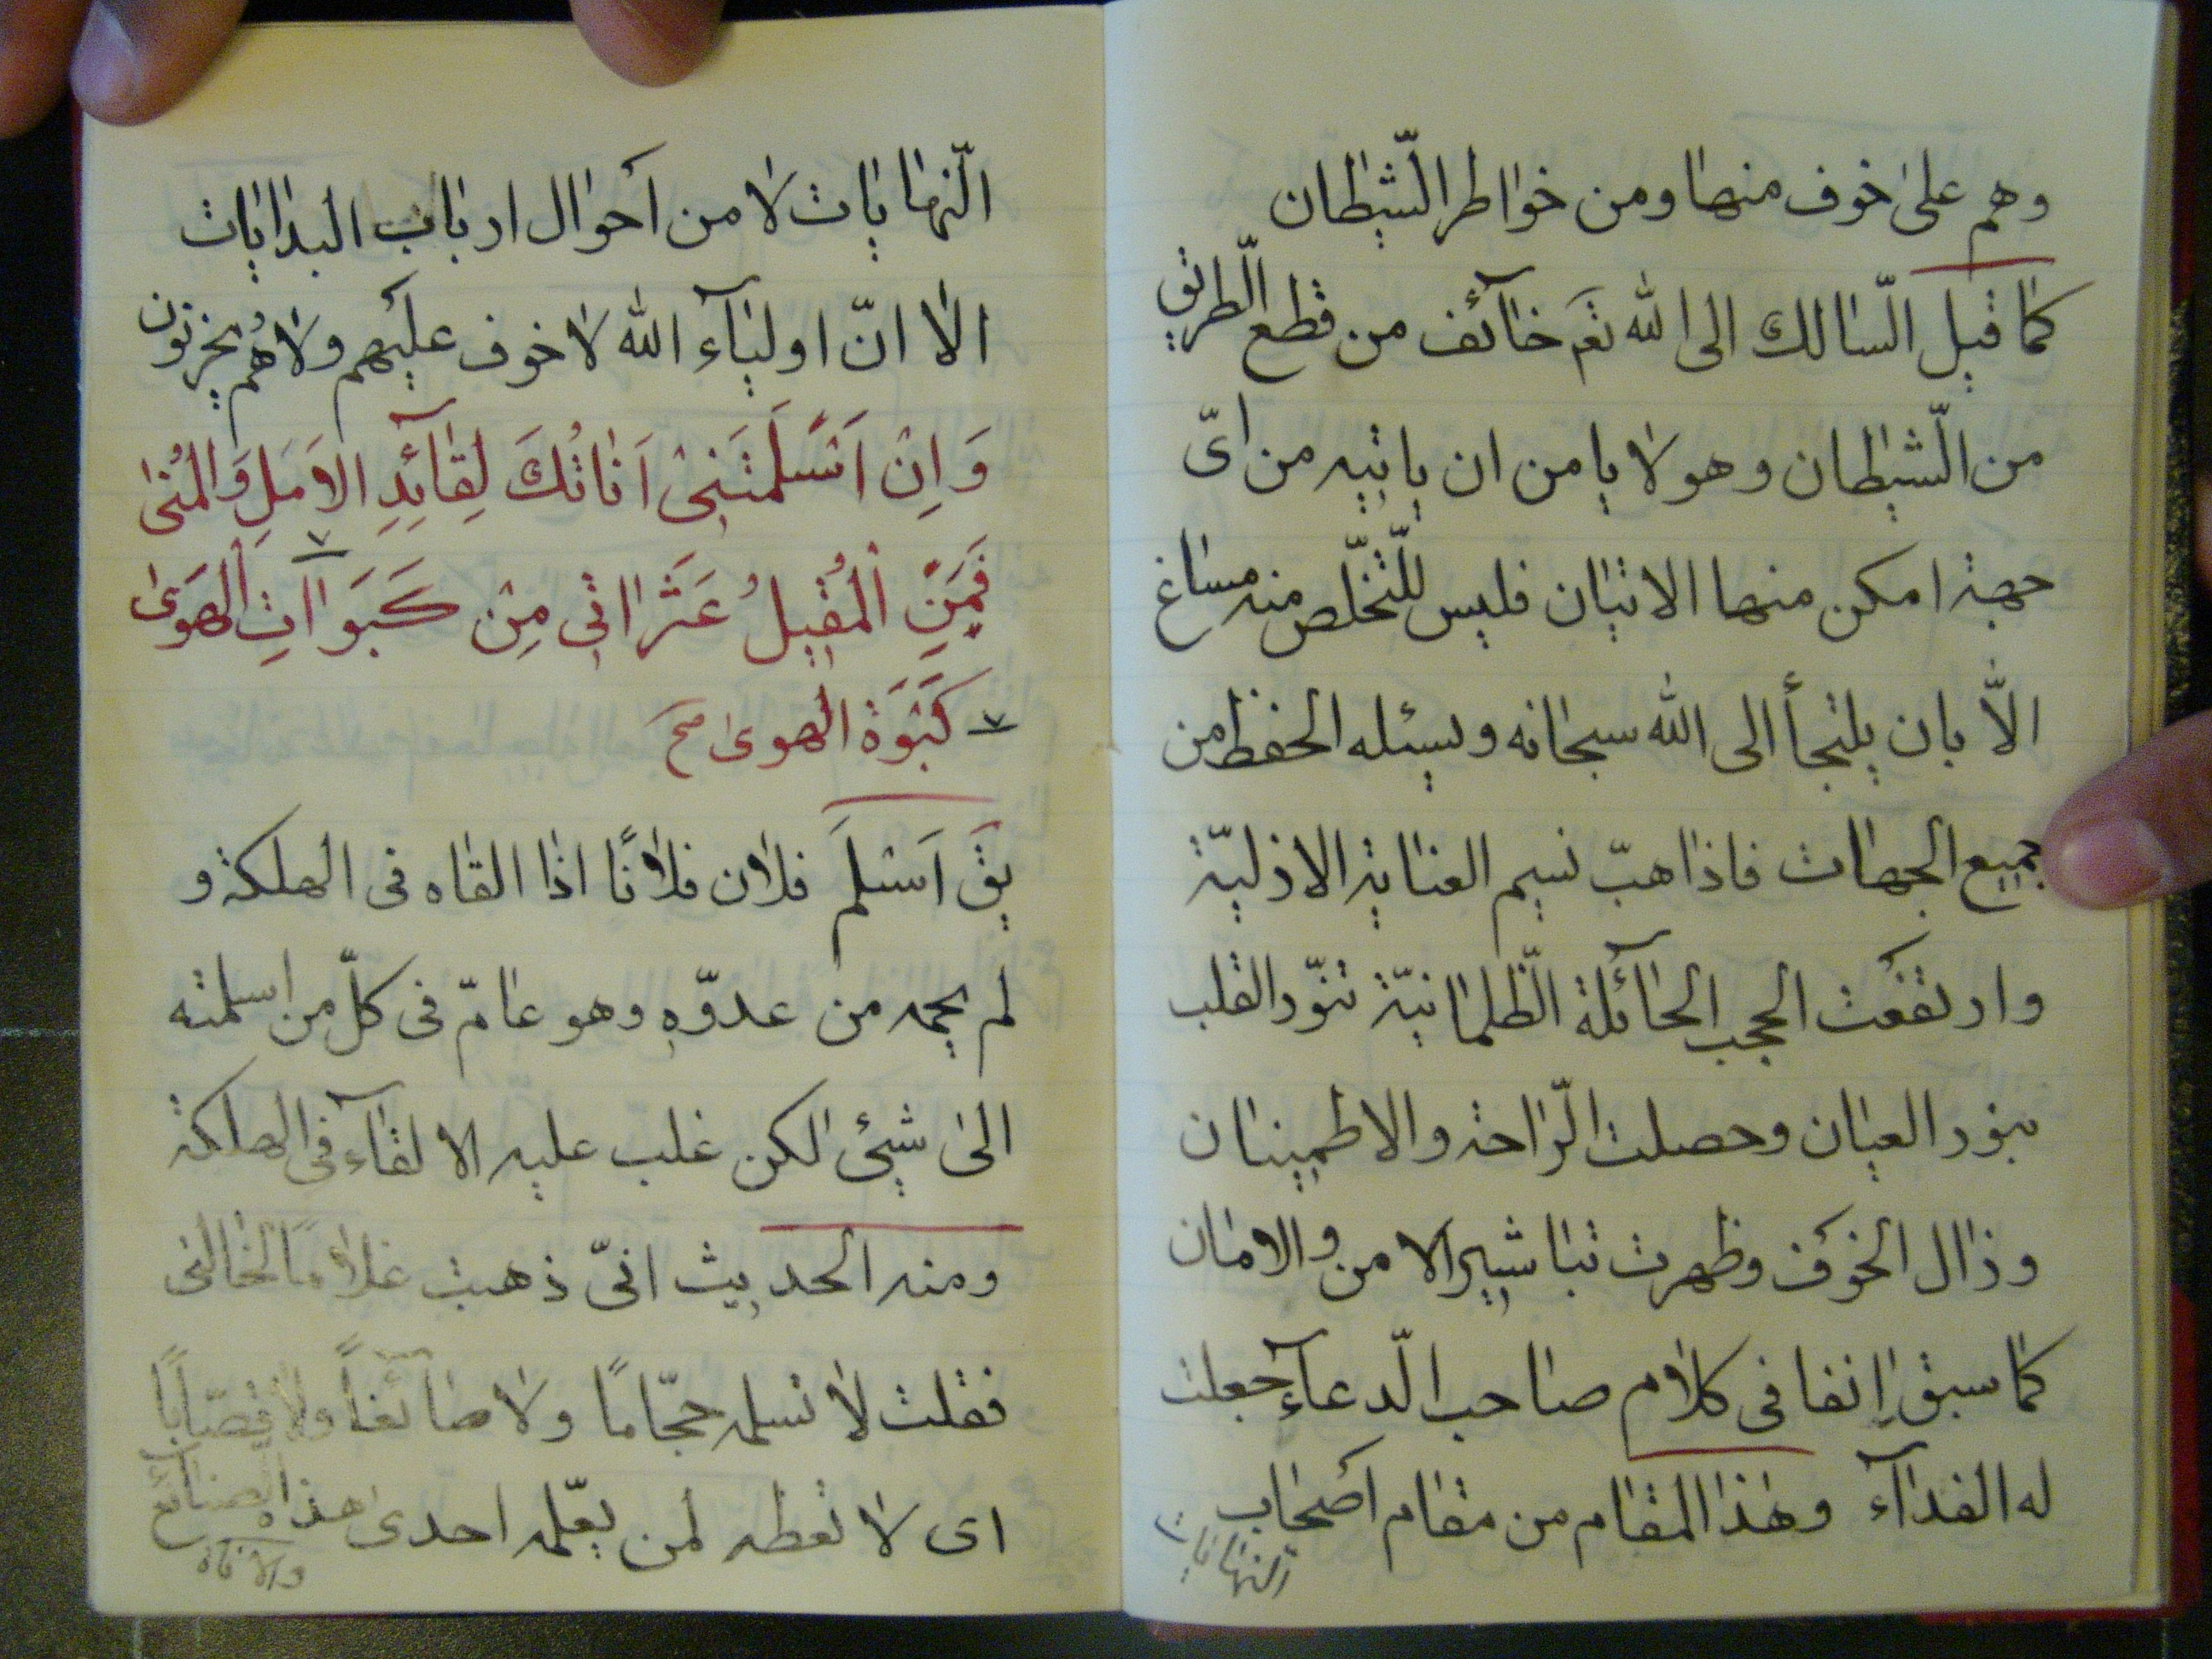 وهم علىٰ خوف منها ومن خواطر الشّيطان
كما قيل السّالك الى الله تعَ خآئف من قطع الطّريق
من الشّيطان وهو لا يامن ان ياتيه من اىّ
جهة امكن منها الاتيان فليس للتّخلّص منه مساغ
الاّ بان يلتجأ الى الله سبحانه ويسئله الحفظ من
جميع الجهات فاذا هبّ نسيم العناية الازليّة
وارتفعت الحجب الحآئلة الظّلمانيّة تنوّر القلب
بنور العيان وحصلت الرّاحة والاطمينان
وذال الخوف وظهرت تباشير الامن والامان
كما سبق انفا فى كلام صاحب الدّعآء جعلت
له الفدآء وهٰذا المقام من مقام أصحاب
النهايات
النّهايات لا من أحوال ارباب البدايات
الا انّ اوليآء الله لا خوف عليهم ولا هُم يحزنون
وَاِنْ اَسْلَمَتَنِىْ اَنَاتُكَ لِقآئِدِ الاَمَلِ وَالْمُنىٰ
فَمَنِ الْمُقِيلُ عَثَرٰاتى مِنْ كَبَوَاتِ الْهَوىٰ
٧ كَبْوَة الهوىٰ صح
يقَ اَسْلَمَ فلان فلانًا اذا القاه فى الهلكة و
لم يحمه من عدوّه وهو عامّ فى كلّ من اسلمته
الىٰ شيئى لكن غلب عليه الالقآء فى الهلكة
ومنه الحديث انىّ ذهبت غلامًا لخالتى
فقلت لا تسلمه حجّامًا ولا صآئغاً ولا قصّاباً
اى لا تعطه لمن يعّلمه احدى هذه الصّنآئع